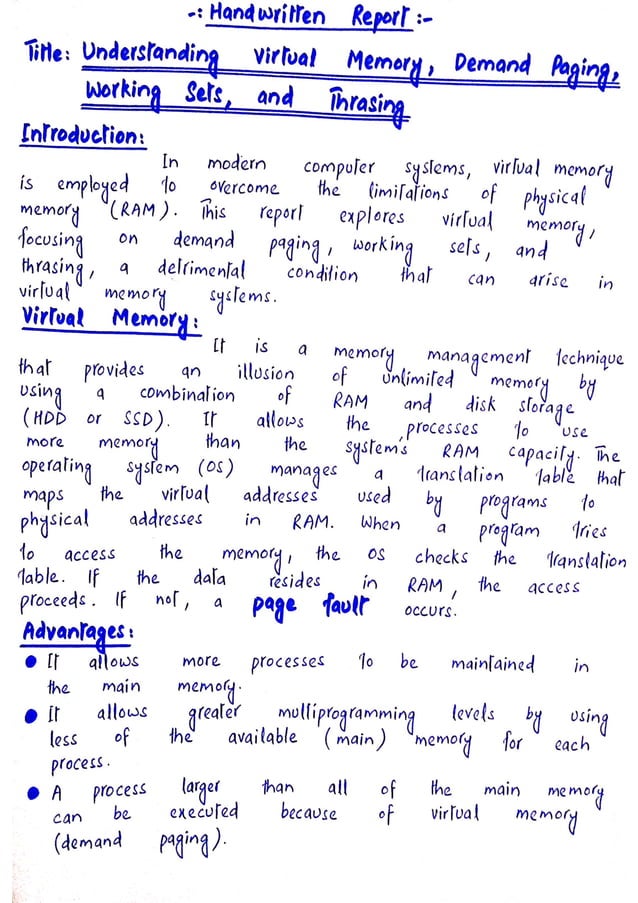 -: Handwritten Report :-
Title: Understanding Virtual Memory, Demand Paging,
Working Sets, and Thrasing
Introduction:
In modern computer systems, virtual memory
is employed to overcome the limitations of physical
memory (RAM). This report explores virtual memory,
focusing on demand paging, working sets, and
thrasing, a detrimental condition that can arise in
virtual memory systems.
Virtual Memory:
It is a memory management technique
that provides an illusion of unlimited memory by
using a combination of RAM and disk storage
(HDD or SSD). It allows the processes to use
more memory than the system's RAM capacity. The
operating system (OS) manages a translation table that
maps the virtual addresses used by programs to
physical addresses in RAM. When a program tries
to access the memory, the OS checks the translation
table. If the data resides in RAM, the access
proceeds. If not, a page fault occurs.
Advantages:
● It allows more processes to be maintained in
the main memory.
● It allows greater multiprogramming levels by using
less of the available (main) memory for each
process.
● A process larger than all of the main memory
can be executed because of virtual memory
(demand paging).